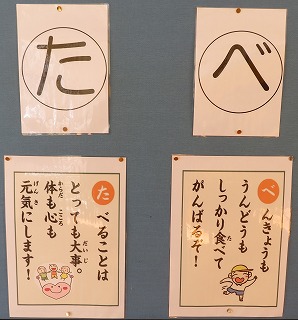 た
べ
たべることは
とっても大事。
体も心も
元気にします！
べんきょうも
うんどうも
しっかり食べて
がんばるぞ！